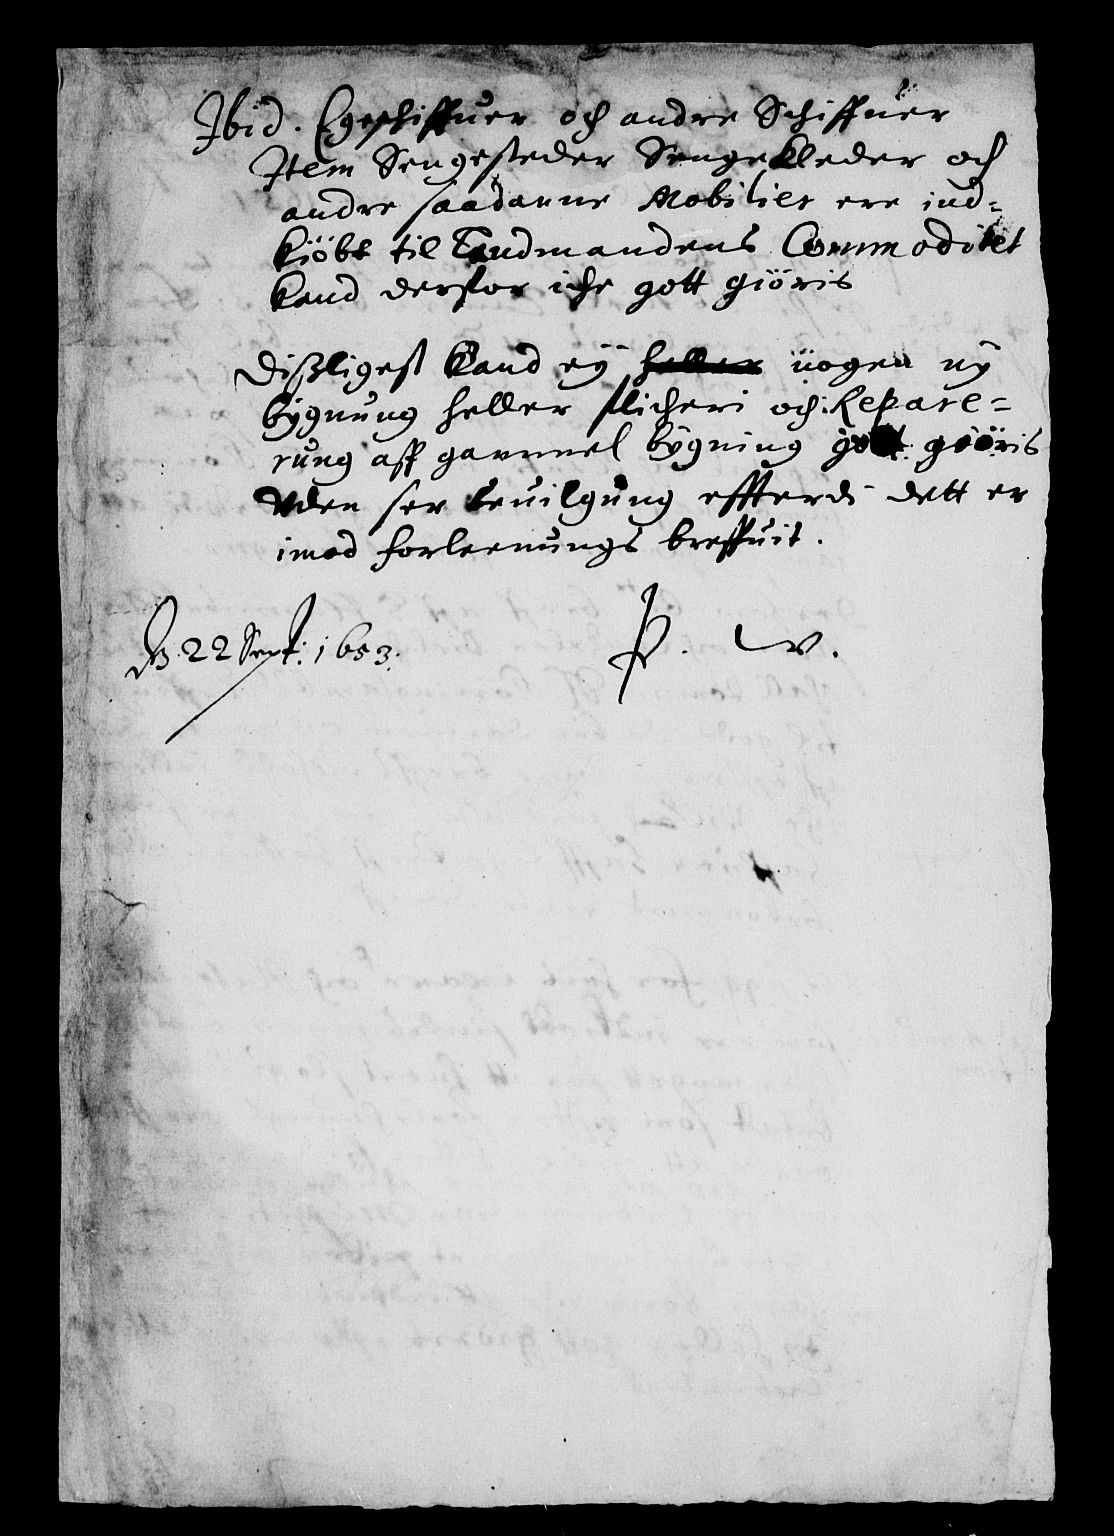 Ibid. Egeschiffuer och andre Schiffuer
Item Sengesteder Sengekleder och
andre saadanne Mobilier ere ind-
kiöbt til Landmandens Commoditet
kand derfor iche gott giöris
Dißligest kand eÿ heller nogen nÿ
bÿgnung heller flicheri och Repare-
rung aff gammel bÿgning gott giöris
Vden ser beuilgung effterdi dett er
imod forleenungs breffuit.
22 Sept: 1653.
P. W.